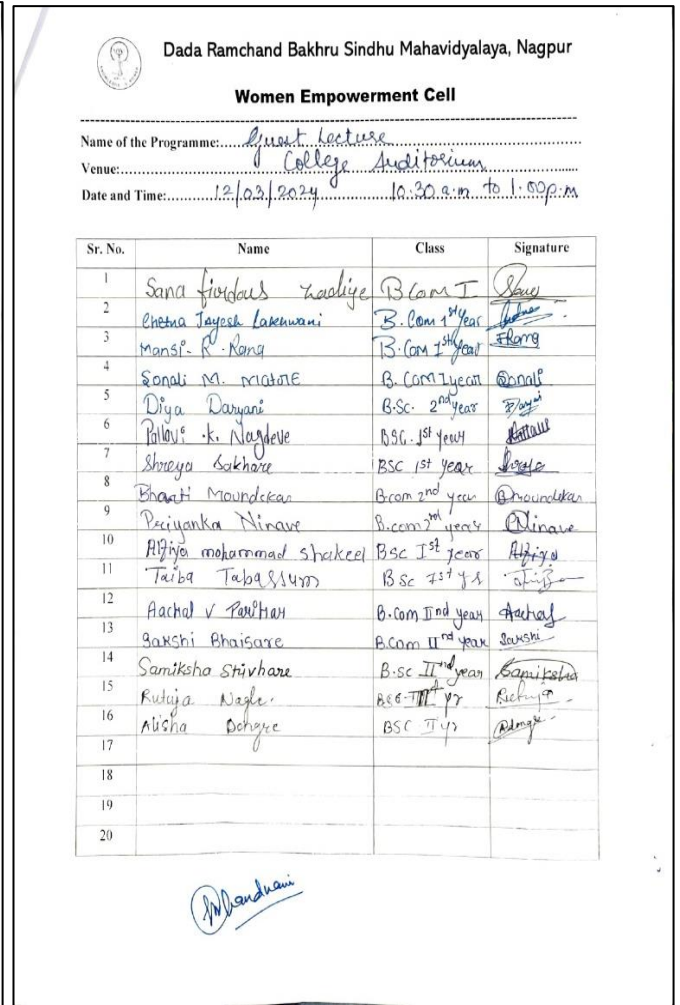 Dada Ramchand Bakhru Sindhu Mahavidyalaya, Nagpur
Women Empowerment Cell
Name of the Programme: Guest Lecture
Venue: College Auditorium
Date and Time: 12/03/2024 10.30 a.m to 1.00p.m
Sr. No. Name Class Signature
1 Sana firdous B Com I
2 Chetna Jayesh Lakhwani B.Com 1st Year
3 Mansi R. B.Com 1st Year
4 Sonali M. B.Com I year Sonali
5 Diya Daryani B.Sc. 2nd year
6 Pallavi .K. Nagdeve BSC. 1st year
7 Shreya Sakhare BSC 1st year
8 Bharti Moundekar B.com 2nd year Bmoundekar
9 Priyanka Ninave B.com 2nd year PNinave
10 Alfiya mohammad shakeel BSc Ist year Alfiya
11 Taiba Tabassum BSc
12 Aachal V Parihar B.Com IInd year Aachal
13 Sakshi Bhaisare B.Com IInd year Sakshi
14 Samiksha Shivhare B.sc IInd year Samiksha
15 Rutuja Nagle. yr
16 Alisha Dongre BSC II yr
17
18
19
20